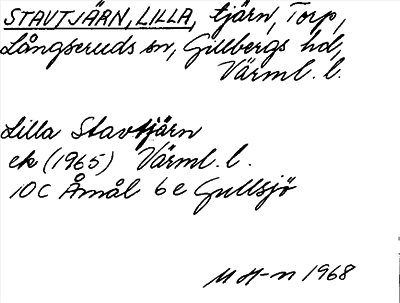 STAVTJÄRN, LILLA, tjärn, Torp,
Långseruds sn, Gillbergs hd,
Värml. l.
Lilla Stavtjärn
ek (1965) Värml. l.
10C Åmål 6e Gullsjö
M A-n 1968